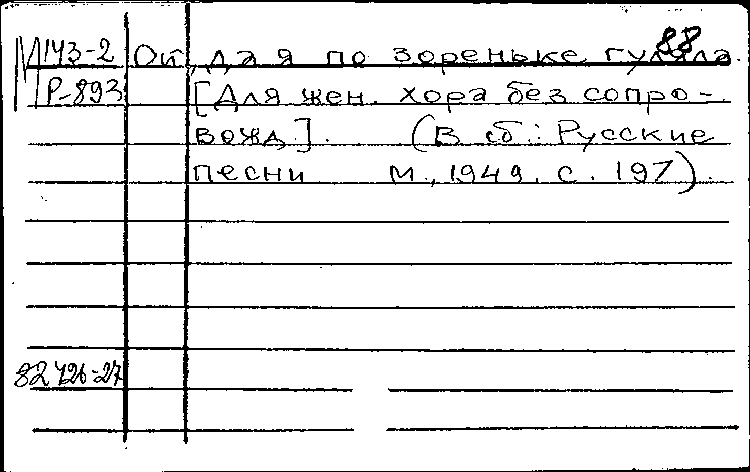 88
М 143-2 Ой, да я по зореньке гуляла
Р-893 [Для жен. хора без сопро-
вожд]. (В сб: Русские
песни М., 1949. с. 197).
82 426-27